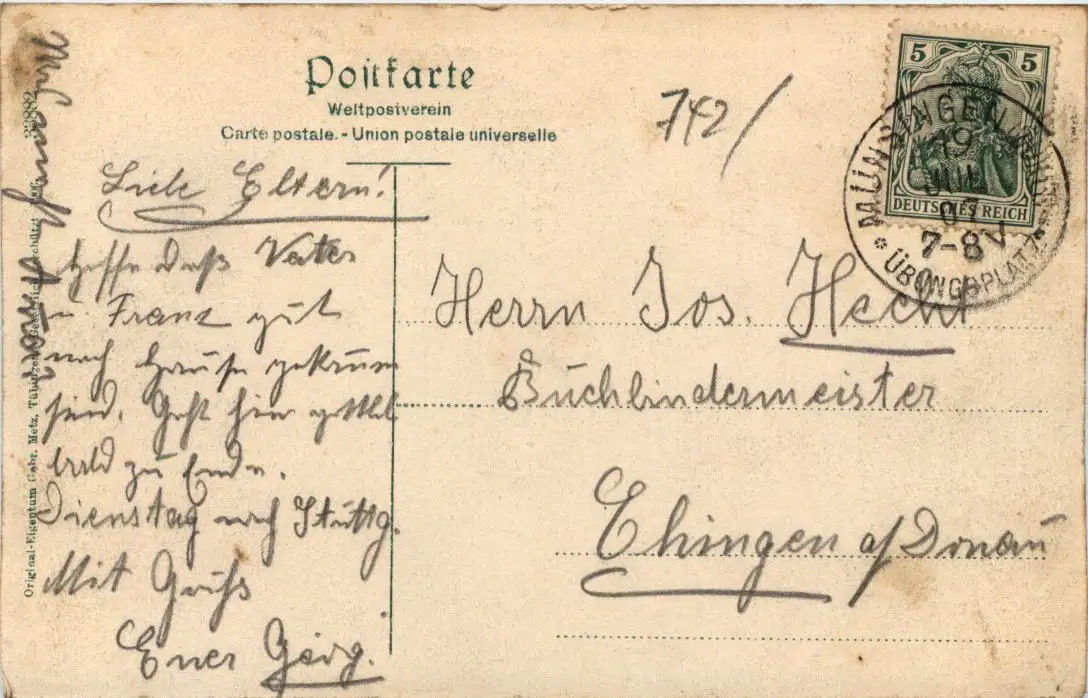 Postkarte
Weltpostverein
Carte postale. - Union postale universelle
742/
5 5
DEUTSCHES REICH
MÜNSINGEN
19
JUL
07
7-8V
* ÜBUNGSPLATZ
Liebe Eltern!
Hoffe daß Vater
u Franz gut
nach Hause gekomm
sind. Geht hier
bald zu Ende.
Dienstag nach Stuttg.
Mit Gruß
Euer Georg.
Herrn Jos. Hecht
Buchbindermeister
Ehingen a/Donau
Original-Eigentum Gebr. Metz, Tübingen. Gesetzlich geschützt
33882